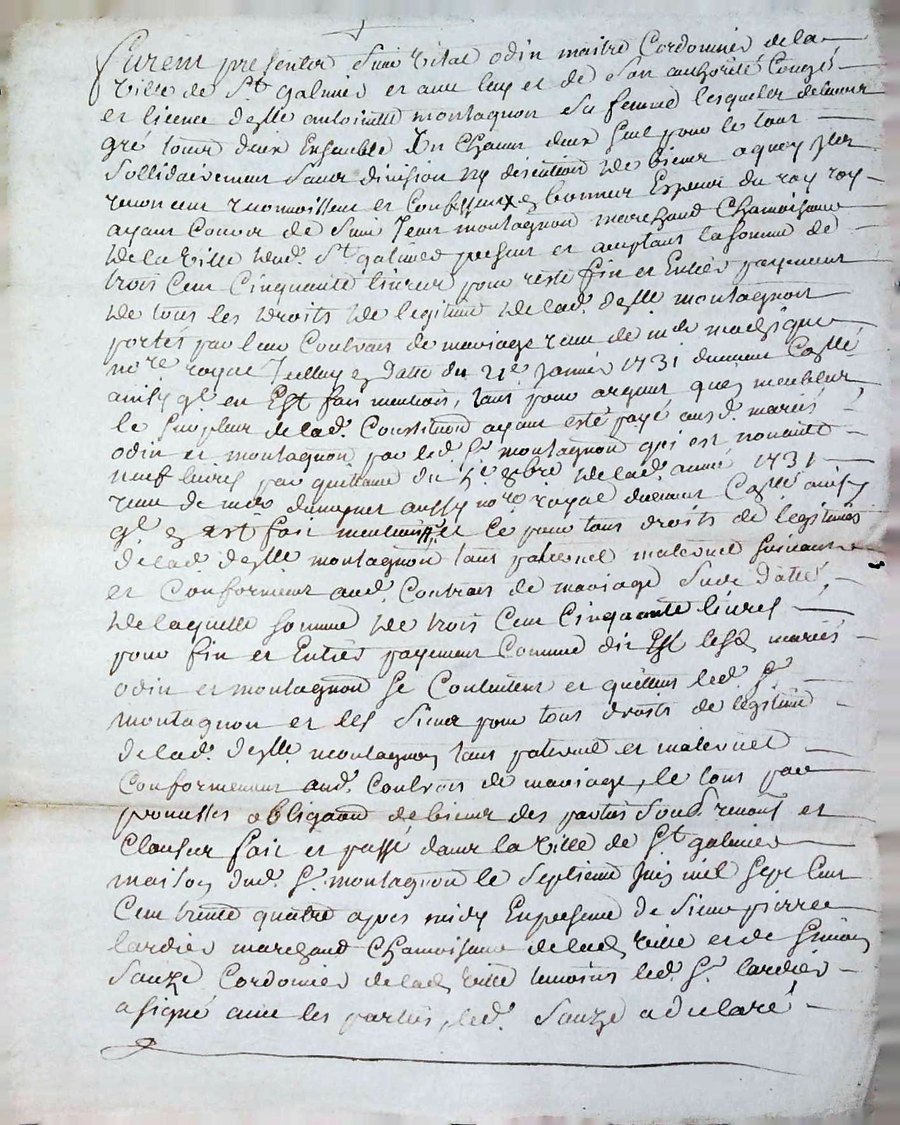 furent presents Sieur Vital odin maitre Cordonnier de la
Ville de St galmier et avec luy et de son authorité Congés
et licence delle antoinette montagnon sa femme lesquels de leur
gré tous deux Ensemble Un Chacun deux seul pour le tout
Sollidairement Sans division ny discution de bieur a quoy
renoncent reconnoissent et Confessent
ayant Couvr de Sieur Jean montagnon marchand Chamoiseur
de la Ville dud. St galmier present et acceptant la somme de
trois Cent Cinquante livres pour reste fin et Entier payement
de tous les droits de legitime de lad. delle montagnon
portés par leur Contrat de mariage receu de me
nore royal dud en datte du 21e Janvier 1731 duement Collé
ainsy ql en Est fait mention, tant pour argent que meubles
le surplus de lad. Constitution ayant esté payé ausd. mariés
odin et montagnon par led. Sr montagnon qui est nonante
neuf livres par quittance du 5e 8bre de lad. année 1731
receu de me aussy nore royal duement Collé ainsy
ql en Est fait mention et ce pour tous droits de legitimes
de lad. delle montagnon tant paternel maternel suivant
et Conformement aud. Contrat de mariage Susd datté
de laquelle somme de trois Cent Cinquante livres
pour fin et Entier payement Comme dit Est lesd mariés
odin et montagnon se Contentent et quittent led. Sr
montagnon et les siens pour tous droits de legitime
de lad. delle montagnon tant paternel et maternel
Conformement aud. Contrat de mariage, le tout par
promesses obligaon de bieur des parties Soud renont et
Clauses fait et passé dans la Ville de St galmier
maison dud. Sr montagnon le Septieme Juin mil Sept Cent
Cent trente quatre apres midy En presence de Sieur pierre
lardier marchand Chamoiseur de lad Ville et de Simon
Sauze Cordonnier de lad Ville temoins led. Sr lardier
a signé avec les parties, led. Sauze a declaré